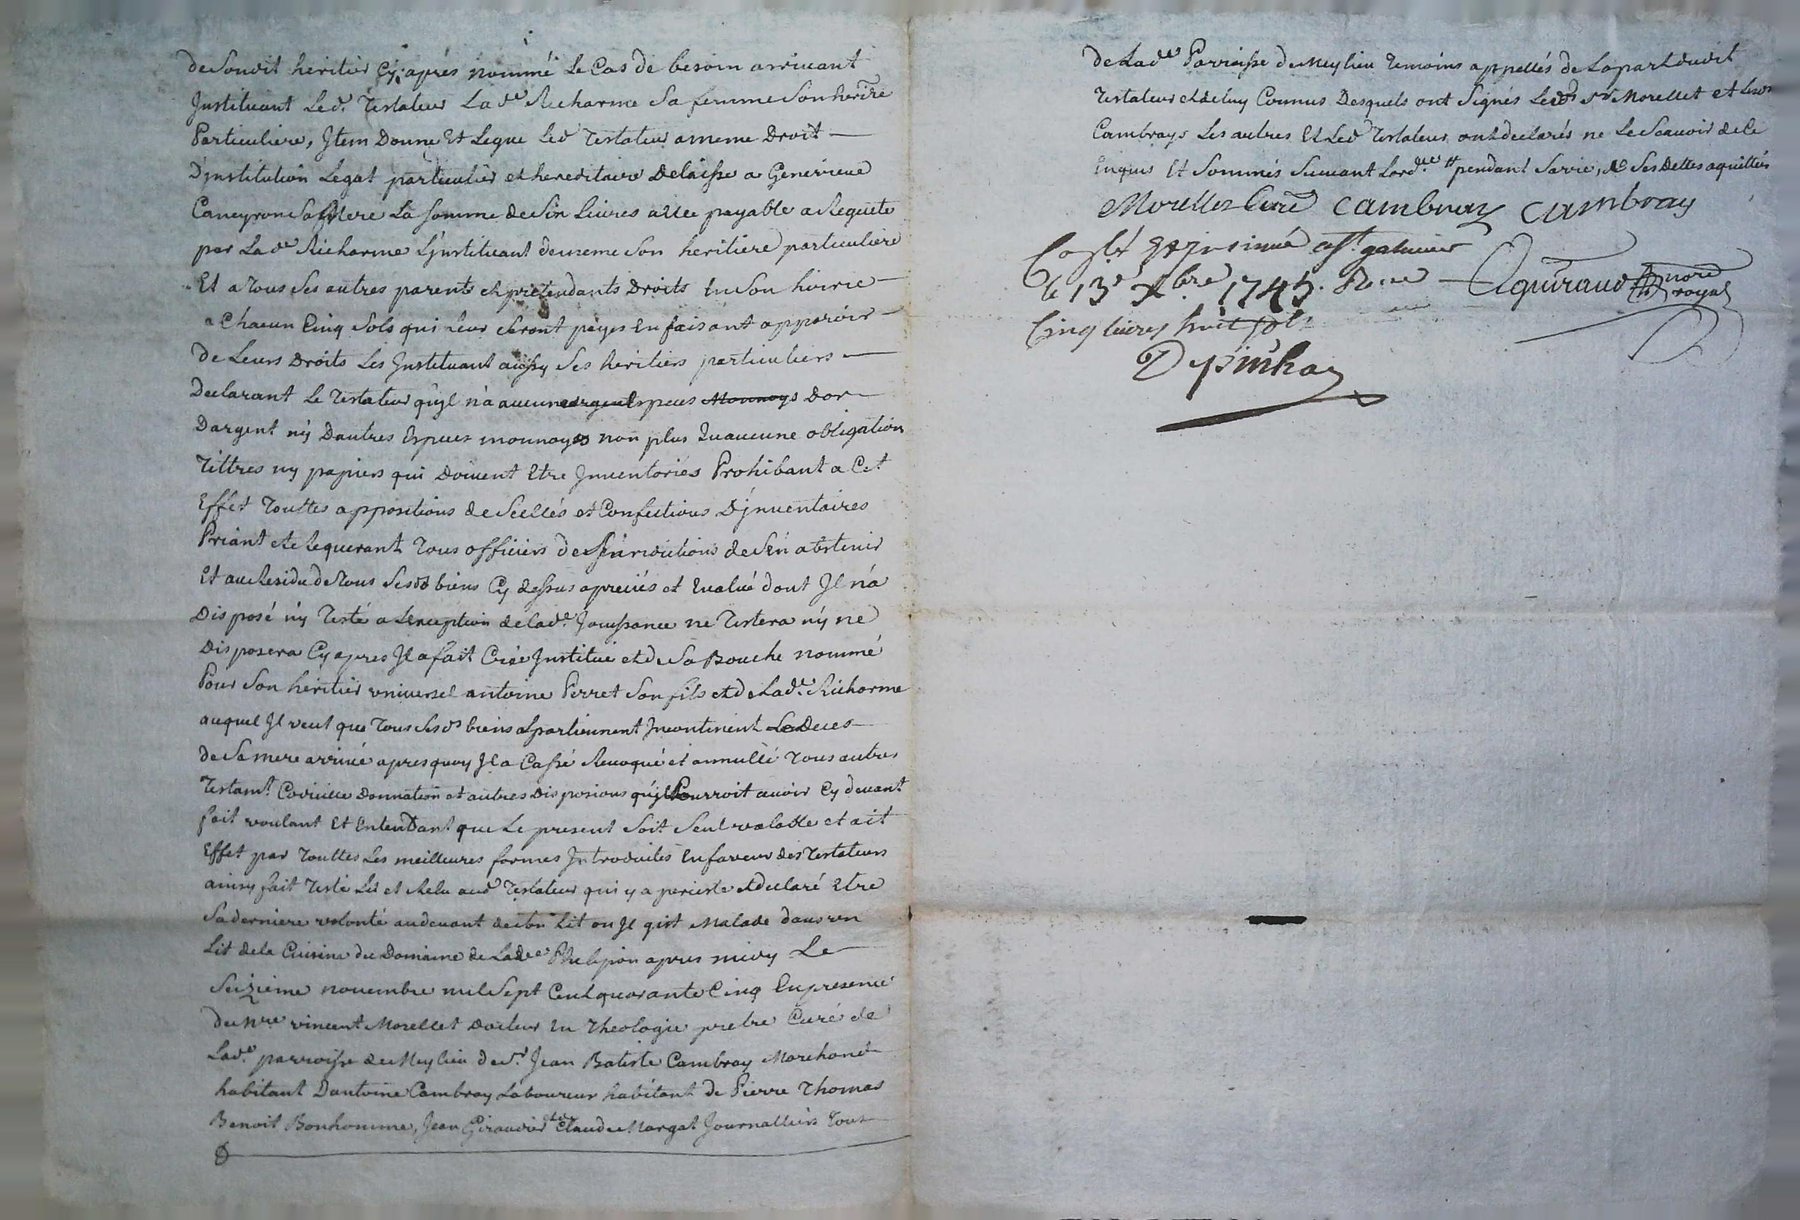 de Soudit heritier Cy après nommé Le Cas de besoin arrivant
Jnstituant Led. Testateur Lad.e Richarme Sa femme Son herit.re
Particuliere, Jtem Donne Et Legue Led Testateur a meme Droit —
D'jnstitution Legat particulier et hereditaire Delaisse a Genevieve
Caneyron Sa la Somme de Six Livres a Elle payable a Sa Requete
par Lad.e Richarme L'jnstituant de meme Son heritiere particuliere
Et a Tous Ses autres parents et pretendants Droits En Son hoirie —
a Chacun Cinq Sols qui Leur Seront payes En faisant apparoir —
de Leurs Droits Les Jnstituant aussy Ses heritiers particuliers —
Declarant Le Testateur qu'jl n'a aucunes Espeses Monnoys Dor —
Dargent ny Dautres Espeses monnoyes non plus Quaucune obligation
Tittres ny papiers qui Doivent Etre Jnventoriés Prohibant a Cet
Effet Touttes appositions de Scellés et Confections D'jnventaires
Priant et Requerant Tous officiers de Jurisdictions de S'En abstenir
Et au Residu de Tous Sesd biens Cy dessus apreciés et Evalué dont Jl n'a
Disposé ny Testé a L'exception de lad.e Jouissance ne Testera ny ne
Disposera Cy apres Jl a fait Créé Jnstitué et de Sa Bouche nommé
Pour Son héritier universel antoine Perret Son fils et de Lad.e Richarme
auquel Jl veut que Tous Sesd biens apartiennent Jncontinent Le Deces
de Sa mere arrivé apres quoy Jl a Cassé Revoqué et annullé Tous autres
Testam.t Codicille Donnation et autres Disposions qu'jl Pourroit avoir Cy devant
fait voulant Et Entendant que Le present Soit Seul valable et ait
Effet par Touttes Les meilleures formes Jntroduites En faveur des Testateurs
ainsy fait Testé Lû et Relu aud Testateur qui y a persisté et declaré Etre
Sa derniere volonté au devant de Son Lit ou Jl gist Malade dans un
Lit de la Cuisine du Domaine de Lad.e Philipon apres midy Le
Seizieme novembre mil Sept Cent quarante Cinq En presence
de M.re vincent Morellet Docteur En Theologie pretre Curé de
Lad.e parroisse de Meylieu de S.r Jean Batiste Cambray Marchand
habitant D'antoine Cambray Laboureur habitant de Pierre Thomas
Benoit Bonhomme, Jean Giraudier et Claude Margat Journalliers Tous
de Lad.e Parroisse de Meylieu Temoins appellés de La part dudit
Testateur et de luy Connus Desquels ont Signés Lesd S.rs Morellet et Lesd
Cambrays Les autres Et Led Testateur ont declarés ne Le Scavoir de Ce
Enquis Et Sommés Suivant Lord.ce # pendant Sa vie, Ses Dettes aquittés
Morellet Curé Cambray Cambray
Con.lé Et jnsinué a St galmier
le 13.e Xbre 1745. R. —
Cinq livres huit sols
Depinhac
Aguiraud nore
royal